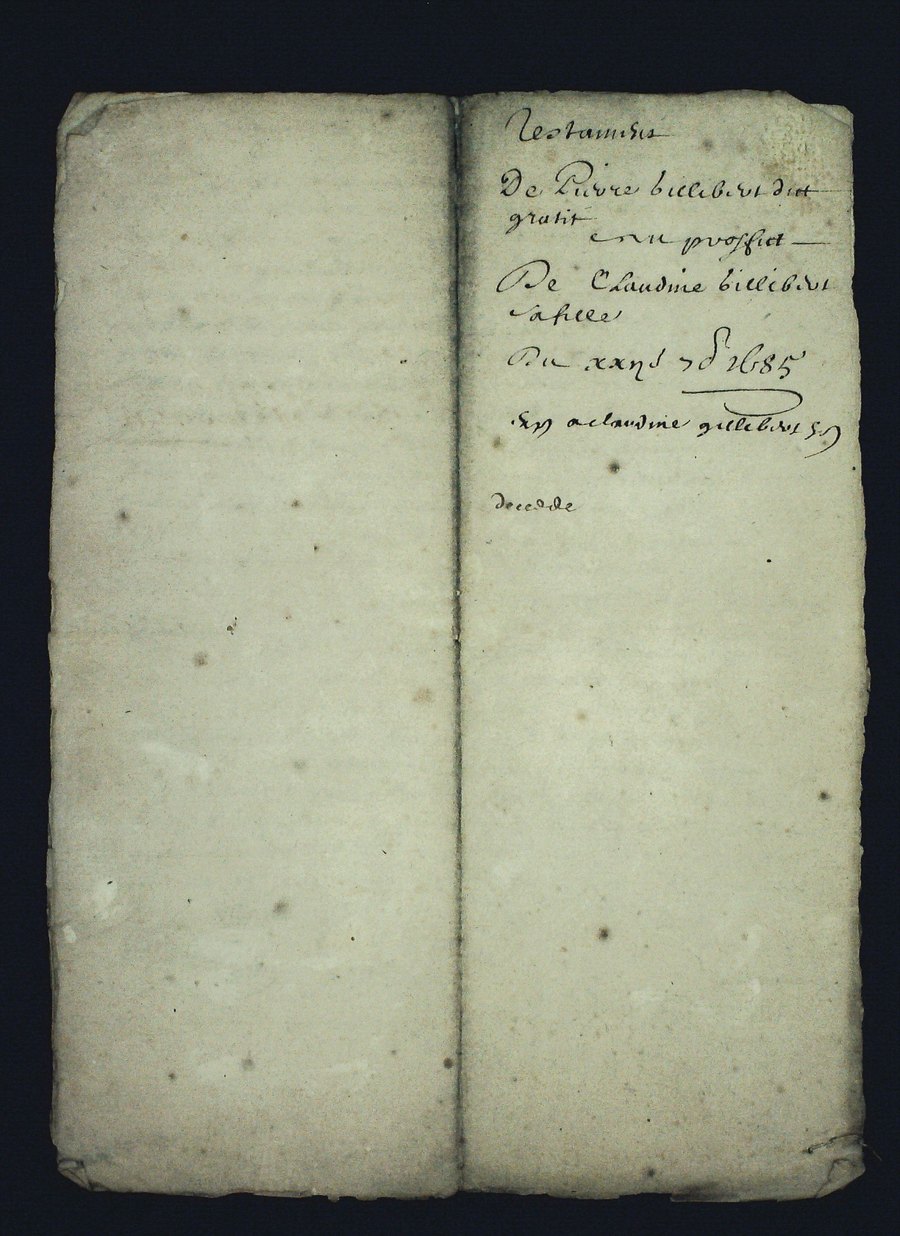 Testament
De Pierre billibert dict
gratit
au proffict
De Claudine billibert
sa fille
Du xxije 7b 1685
exp a claudine gillibert
decedde